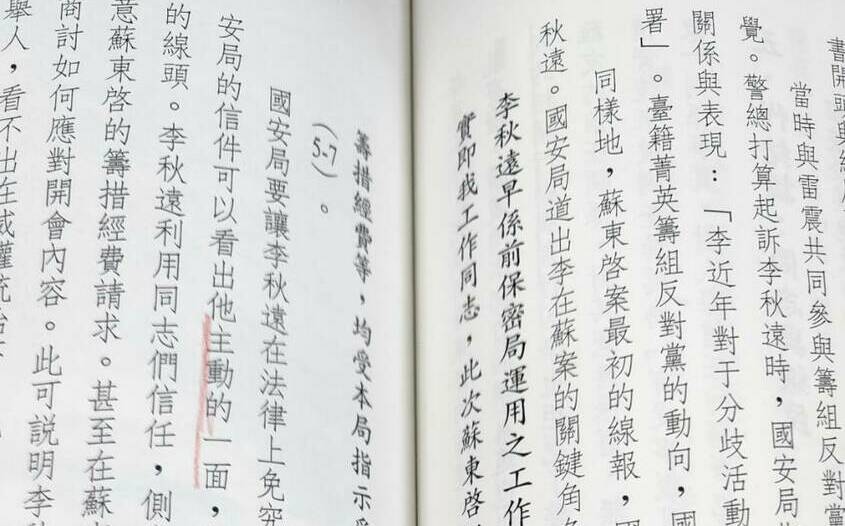 書開頭與
當時與雷震共同參與籌組反對黨
覺。警總打算起訴李秋遠時，國安局
關係與表現：「李近年對于分歧活動
署」。臺籍菁英籌組反對黨的動向，
同樣地，蘇東啓案最初的線報，
秋遠。國安局道出李在蘇案的關鍵角
李秋遠早係前保密局運用之工作
實即我工作同志，此次蘇東啓
籌措經費等，均受本局指示
(5-7)。
國安局要讓李秋遠在法律上免究
安局的信件可以看出他主動的一面，
的線頭。李秋遠利用同志們信任，側
意蘇東啓的籌措經費請求。甚至在蘇
商討如何應對開會內容。此可說明李
舉人，看不出在威權統治